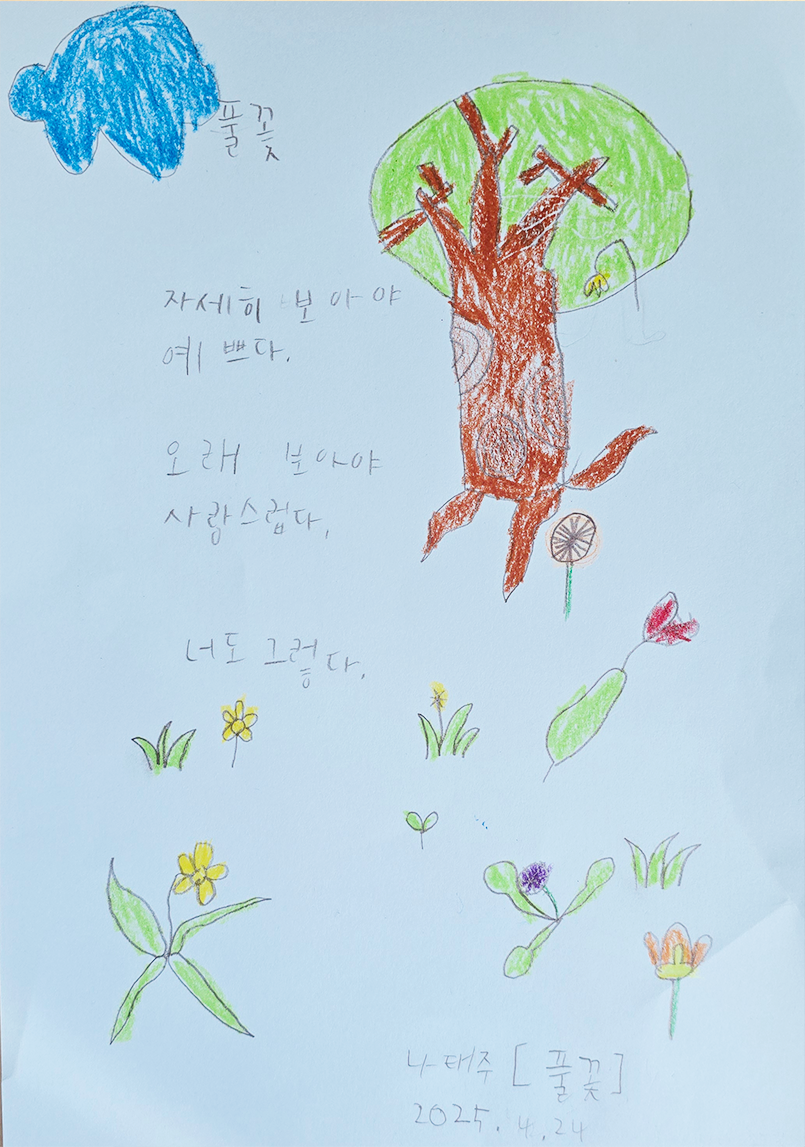 풀꽃
자세히 보아야
예쁘다.
오래 보아야
사랑스럽다.
너도 그렇다.
나태주 [풀꽃]
2025. 4. 24